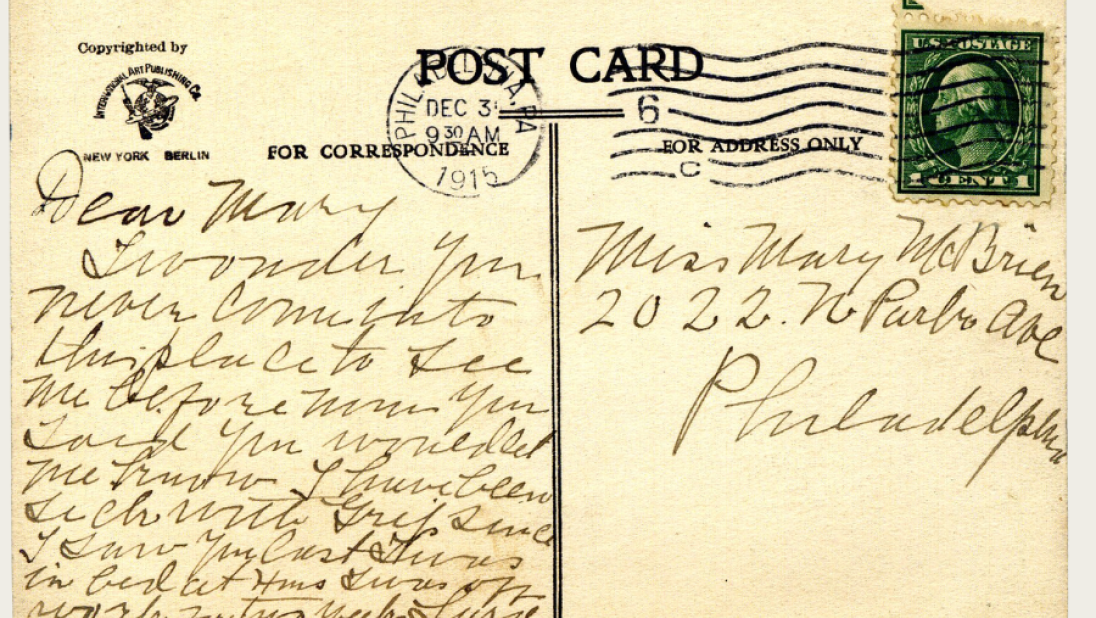 Copyrighted by
INTERNATIONAL ART PUBLISHING Co.
NEW YORK BERLIN
POST CARD
FOR CORRESPONDENCE
FOR ADDRESS ONLY
PHILADELPHIA, PA
DEC 31
9 30 AM
1915
6
C
U.S. POSTAGE
1 CENT 1
Dear Mary
I wonder you
never come into
this place to see
me before now you
said you would let
me know I have been
sick with Grip since
I saw you last I was
in bed at Xmas I was off
work
Miss Mary McBrien
2022. N Park Ave
Philadelphia